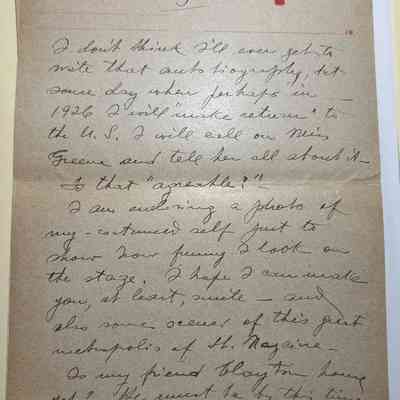 I don't think I'll ever get to
write that autobiography, but
some day when perhaps in
1926 I will "make return" to
the U.S. I will call on Miss
Greene and tell her all about it—
Is that "agreable?"—
I am enclosing a photo of
my-costumed self just to
show how funny I look on
the stage. I hope I can make
you, at least, smile — and
also some scenes of this great
metropolis of St. Nazaire—
Is my friend Clayton home
yet? He must be by this time